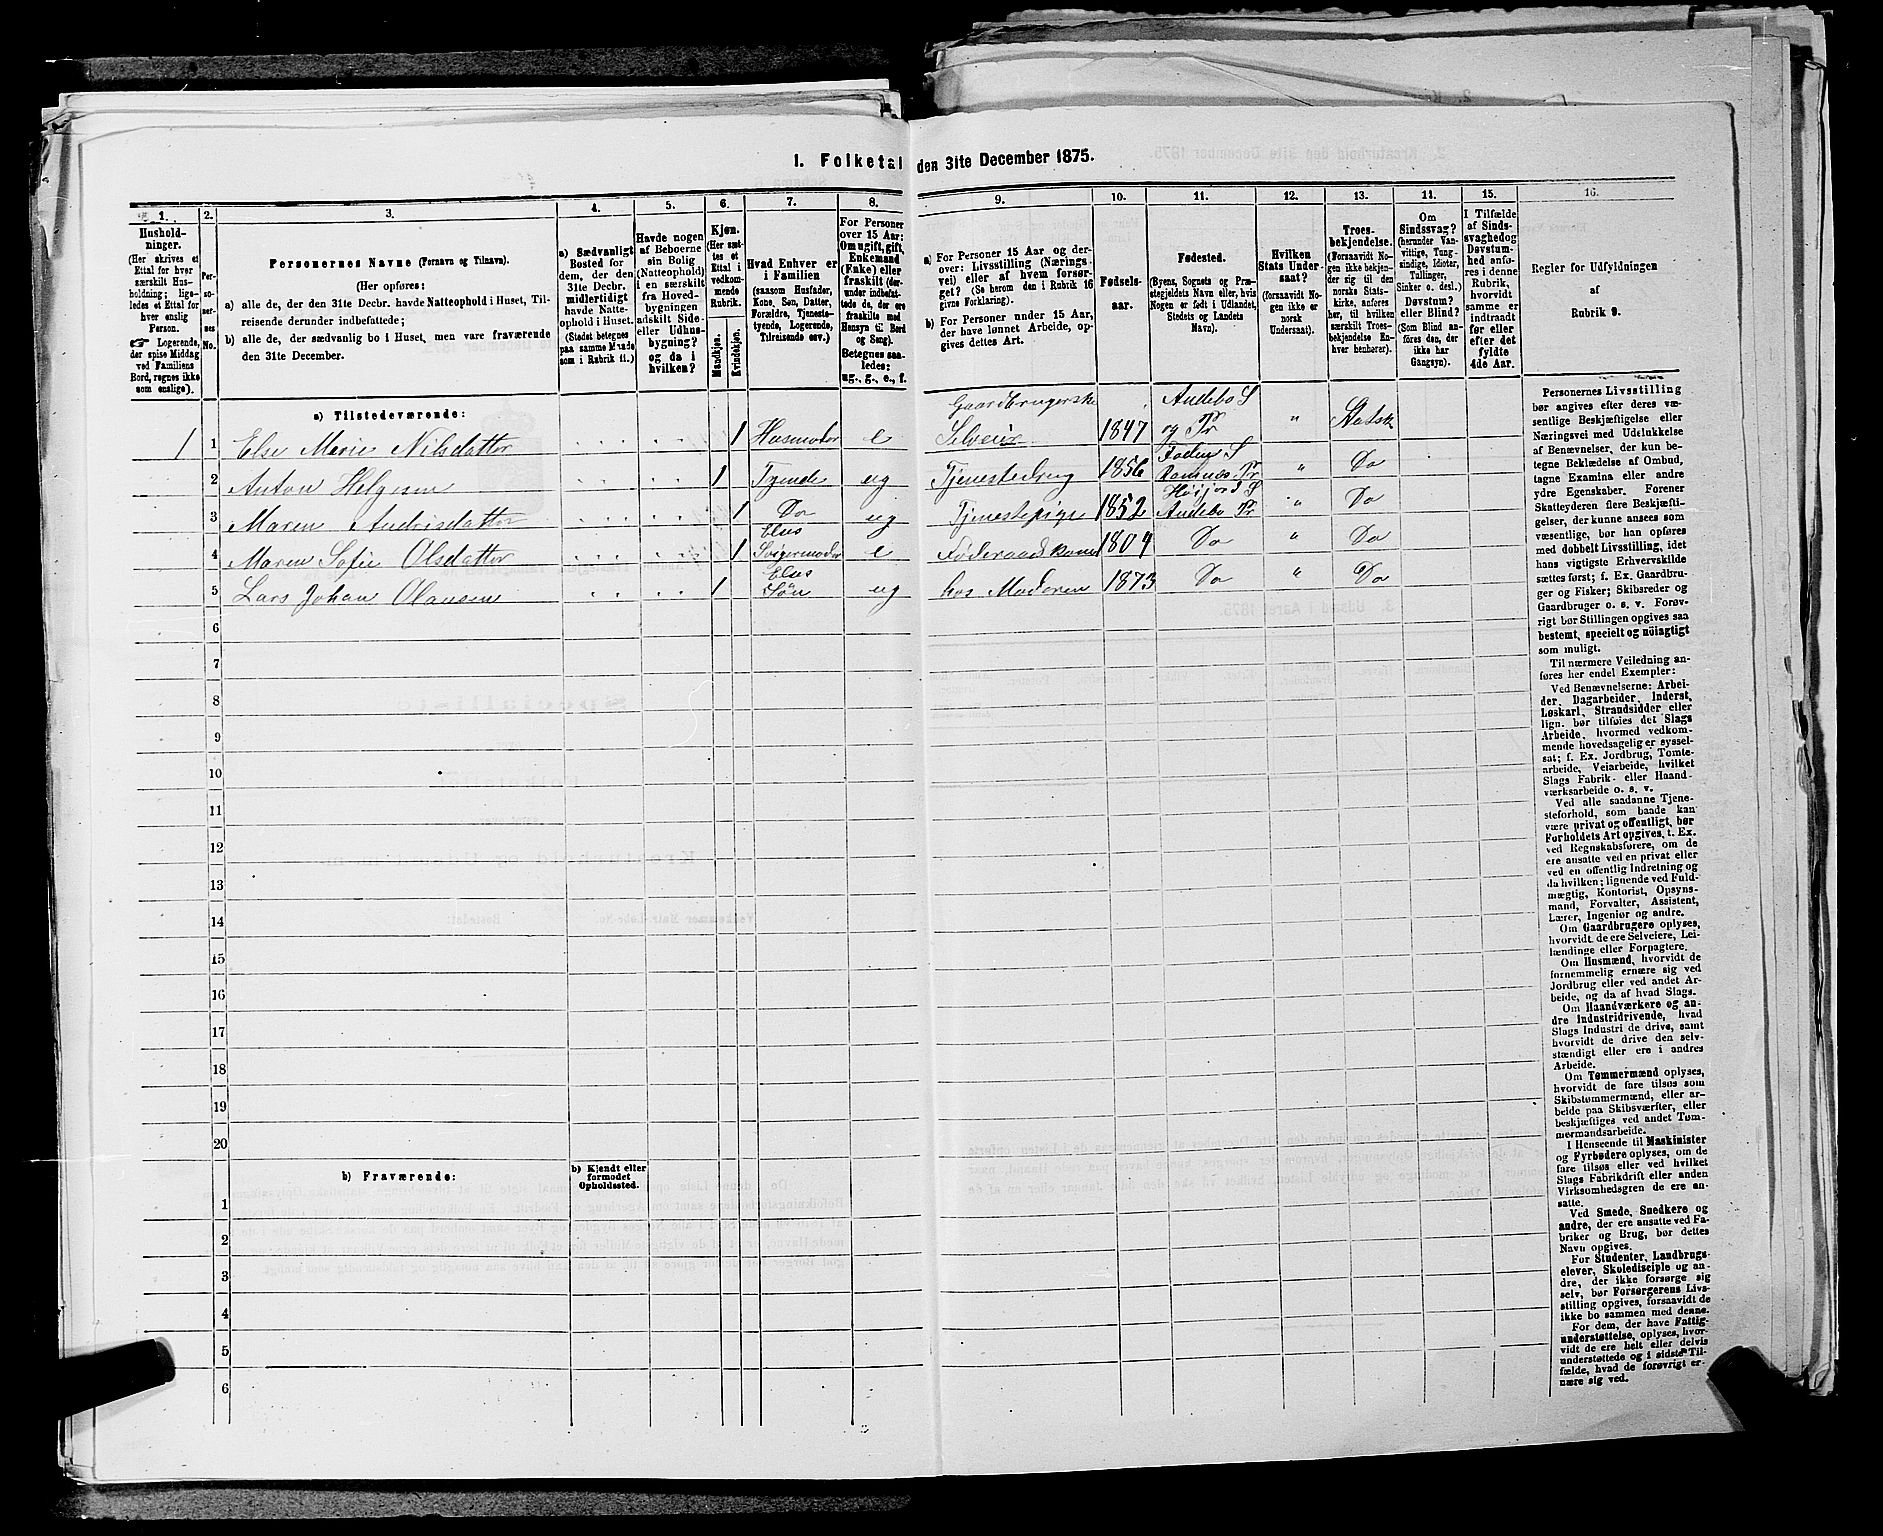 1. Folketal den 31te December 1875.
1.
2.
3.
4.
5.
6.
7.
8.
9.
10.
11.
12.
13.
14.
15.
16.
Hushold-
ninger.
(Her skrives et
Ettal for hver
særskilt Hus-
holdning; lige-
ledes et Ettal for
hver enslig
Person.
☞ Logerende,
der spise Middag
ved Familiens
Bord, regnes ikke
som enslige).
Per-
so-
ner-
nes
No.
Personernes Navne (Fornavn og Tilnavn).
(Her opføres:
a) alle de, der den 31te Decbr. havde Natteophold i Huset, Til-
reisende derunder indbefattede;
b) alle de, der sædvanlig bo i Huset, men vare fraværende
den 31te December.
a) Sædvanligt
Bosted for
dem, der den
31te Decbr.
midlertidigt
havde Natte-
ophold i Huset.
(Stedet betegnes
paa samme Maade
som i Rubrik 11.)
Havde nogen
af Beboerne
sin Bolig
(Natteophold)
i en særskilt
fra Hoved-
bygningen
adskilt Side-
eller Udhus-
bygning?
og da i
hvilken?
Kjøn.
(Her sæt-
tes et
Ettal i
vedkom-
mende
Rubrik.
Mandkjøn.
Kvindekjøn.
Hvad Enhver er
i Familien
(saasom Husfader,
Kone, Søn, Datter,
Forældre, Tjeneste-
tyende, Logerende,
Tilreisende osv.)
For Personer
over 15 Aar:
Om ugift, gift,
Enkemand
(Enke) eller
fraskilt (der-
under indbefat-
tede de, der ere
fraskilte med
Hensyn til Bord
og Seng).
Betegnes saa-
ledes:
ug., g., e., f.
a) For Personer 15 Aar og der-
over: Livsstilling (Nærings-
vei) eller af hvem forsør-
get? (Se herom den i Rubrik 16
givne Forklaring).
b) For Personer under 15 Aar,
der have lønnet Arbeide, op-
gives dettes Art.
Fødsels-
aar.
Fødested.
(Byens, Sognets og Præ-
stegjeldets Navn eller, hvis
Nogen er født i Udlandet,
Stedets og Landets
Navn).
Hvilken
Stats Under-
saat?
(forsaavidt No-
gen ikke er
norsk
Undersaat).
Troes-
bekjendelse.
(Forsaavidt No-
gen ikke bekjen-
der sig til den
norske Stats-
kirke, anføres
her, til hvilken
særskilt Troes-
bekjendelse En-
hver henhører).
Om
Sindssvag?
(herunder Van-
vittige, Tung-
sindige, Idioter,
Tullinger,
Sinker o. desl.)
Døvstum?
eller Blind?
(Som Blind an-
føres den, der
ikke har
Gangsyn).
I Tilfælde
af Sinds-
svaghed og
Døvstum-
hed anfø-
res i denne
Rubrik,
hvorvidt
samme er
indtraadt
før eller
efter det
fyldte
4de Aar.
Regler for Udfyldningen
af
Rubrik 9.
a) Tilstedeværende:
1 1 Else Marie Nilsdatter 1 Husmoder e Gaardbrugerske Selveier 1847 Andebo S og Pr " Statsk
2 Anton Helgesen 1 Tyende ug Tjenestedreng 1856 Foden S Ramnæs Pr " Do
3 Maren Andrisdatter 1 Do ug Tjenestepige 1852 Høijord S Andebo Pr " Do
4 Maren Sofie Olsdatter 1 Elses Svigermoder e Føderaadskone 1804 Do " Do
5 Lars Johan Olausen 1 Elses Søn ug hos Moderen 1873 Do " Do
6
7
8
9
10
11
12
13
14
15
16
17
18
19
20
b) Fraværende:
b) Kjendt eller
formodet
Opholdssted.
1
2
3
4
5
6
Personernes Livsstilling
bør angives efter deres væ-
sentlige Beskjæftigelse eller
Næringsvei med Udelukkelse
af Benævnelser, der kun be-
tegne Beklædelse af Ombud,
tagne Examina eller andre
ydre Egenskaber. Forener
Skatteyderen flere Beskjæfti-
gelser, der kunne ansees som
væsentlige, bør han opføres
med dobbelt Livsstilling, idet
hans vigtigste Erhvervskilde
sættes først; f. Ex. Gaardbru-
ger og Fisker; Skibsreder og
Gaardbruger o. s. v. Forøv-
rigt bør Stillingen opgives saa
bestemt, specielt og nøiagtigt
som muligt.
Til nærmere Veiledning an-
føres her endel Exempler:
Ved Benævnelserne: Arbei-
der, Dagarbeider, Inderst,
Løskarl, Strandsidder eller
lign. bør tilføies det Slags
Arbeide, hvormed vedkom-
mende hovedsagelig er syssel-
sat; f. Ex. Jordbrug, Tomte-
arbeide, Veiarbeide, hvilket
Slags Fabrik- eller Haand-
værksarbeide o. s. v.
Ved alle saadanne Tjene-
steforhold, som baade kan
være privat og offentligt, bør
Forholdets Art opgives, t. Ex.
ved Regnskabsførere, om de
ere ansatte ved en privat eller
ved en offentlig Indretning og
da hvilken; lignende ved Fuld-
mægtig, Kontorist, Opsyns-
mand, Forvalter, Assistent,
Lærer, Ingeniør og andre.
Om Gaardbrugere oplyses,
hvorvidt de ere Selveiere, Lei-
lændinge eller Forpagtere.
Om Husmænd, hvorvidt de
fornemmelig ernære sig ved
Jordbrug eller ved andet Ar-
beide, og da af hvad Slags.
Om Haandværkere og an-
dre Industridrivende, hvad
Slags Industri de drive, samt
hvorvidt de drive den selv-
stændigt eller ere i andres
Arbeide.
Om Tømmermænd oplyses,
hvorvidt de fare tilsøs som
Skibstømmermænd, eller ar-
beide paa Skibsværfter, eller
beskjæftiges ved andet Tøm-
mermandsarbeide.
I Henseende til Maskinister
og Fyrbødere oplyses, om de
fare tilsøs eller ved hvilket
Slags Fabrikdrift eller anden
Virksomhedsgren de ere an-
satte.
Ved Smede, Snedkere og
andre, der ere ansatte ved Fa-
briker og Brug, bør dettes
Navn opgives.
For Studenter, Landbrugs-
elever, Skoledisciple og an-
dre, der ikke forsørge sig
selv, bør Forsørgerens Livs-
stilling opgives, forsaavidt de
ikke bo sammen med denne.
For dem, der have Fattig-
understøttelse, oplyses, hvor-
vidt de ere helt eller delvis
understøttede og i sidste Til-
fælde, hvad de forøvrigt er-
nære sig ved.